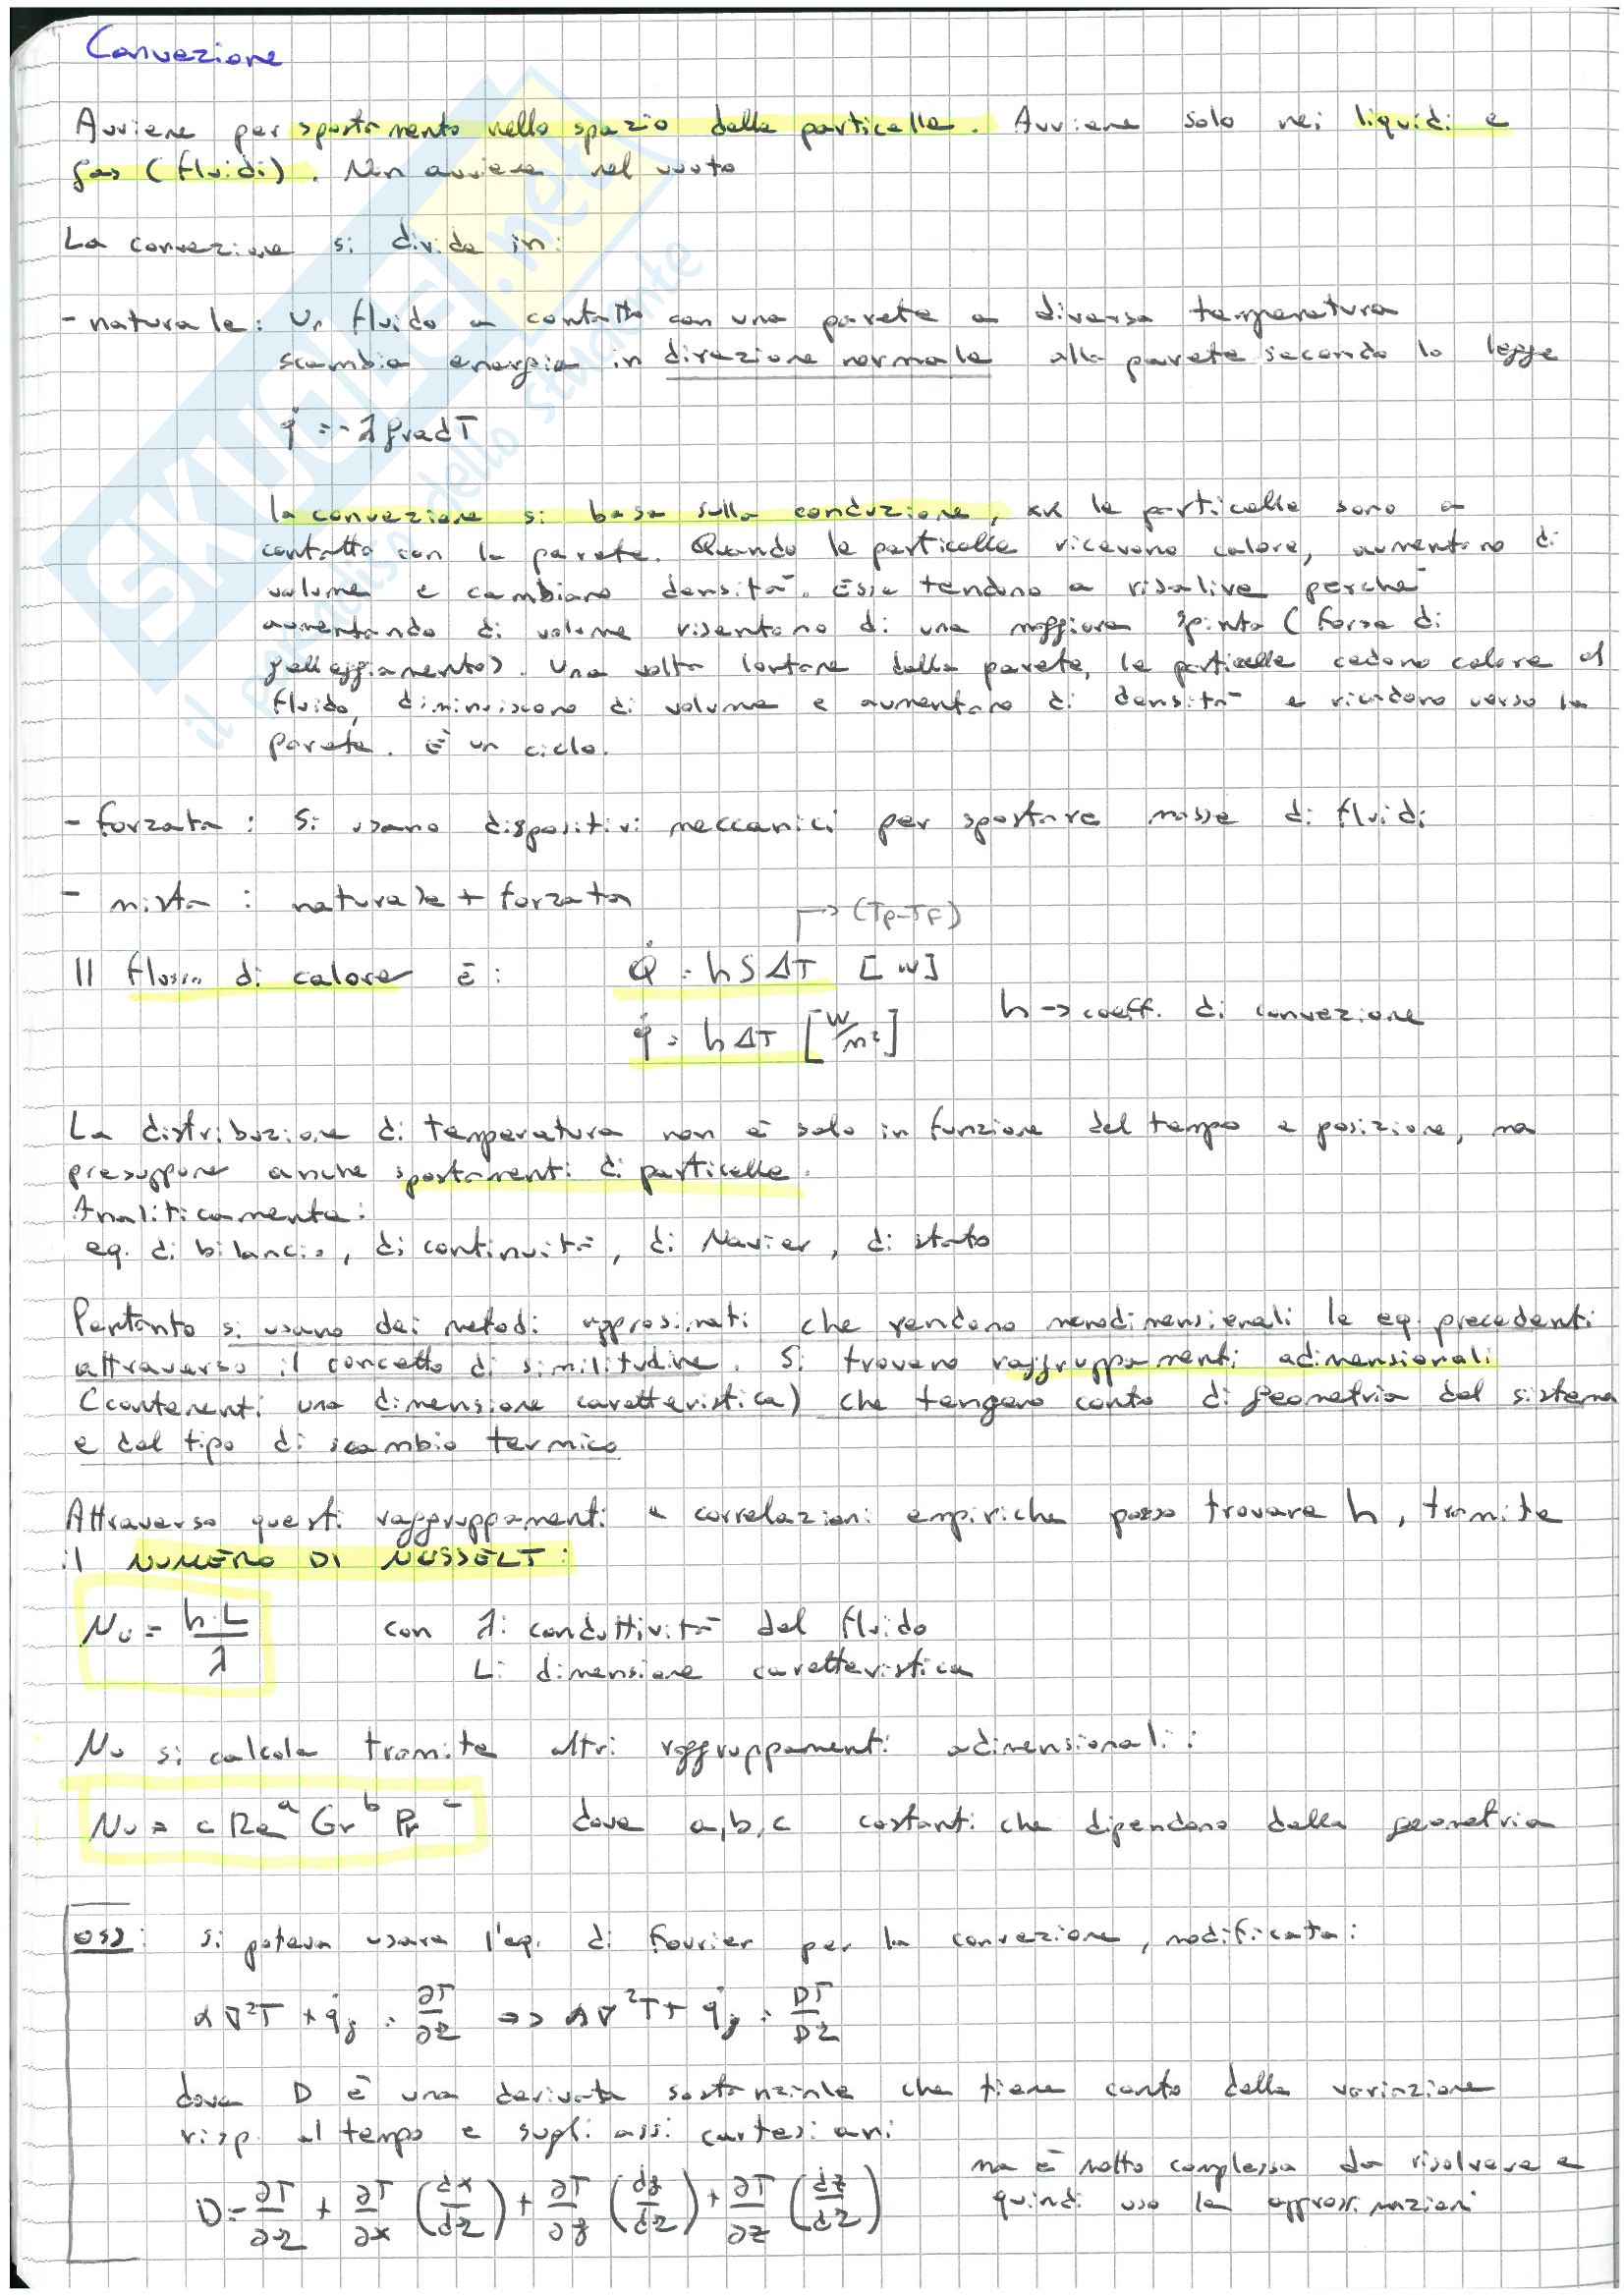 Convezione
Avviene per spostamento nello spazio delle particelle. Avviene solo nei liquidi e
gas (fluidi). Non avviene nel vuoto
La convezione si divide in:
- naturale: Un fluido a contatto con una parete a diversa temperatura
scambia energia in direzione normale alla parete secondo la legge
q̇ = -λ grad T
la convezione si basa sulla conduzione, xk le particelle sono a
contatto con la parete. Quando le particelle ricevono calore, aumentano di
volume e cambiano densità. Esse tendono a risalire perché
aumentando di volume risentono di una maggiore spinta (forza di
galleggiamento). Una volta lontane dalla parete, le particelle cedono calore al
fluido, diminuiscono di volume e aumentano di densità e ricadono verso la
parete. È un ciclo.
- forzata: Si usano dispositivi meccanici per spostare masse di fluidi
- mista: naturale + forzata
→ (Tp-TF)
Il flusso di calore è: Q̇ = h S ΔT [W]
h → coeff. di convezione
q̇ = h ΔT [W/m²]
La distribuzione di temperatura non è solo in funzione del tempo e posizione, ma
presuppone anche spostamenti di particelle.
Analiticamente:
eq. di bilancio, di continuità, di Navier, di stato
Pertanto si usano dei metodi approssimati che rendono monodimensionali le eq. precedenti
attraverso il concetto di similitudine. Si trovano raggruppamenti adimensionali
(contenenti una dimensione caratteristica) che tengono conto di geometria del sistema
e del tipo di scambio termico
Attraverso questi raggruppamenti e correlazioni empiriche posso trovare h, tramite
il NUMERO DI NUSSELT:
Nu = h·L / λ con λ: conduttività del fluido
L: dimensione caratteristica
Nu si calcola tramite altri raggruppamenti adimensionali:
Nu = c Re^a Gr^b Pr^c dove a,b,c costanti che dipendono dalla geometria
oss: si poteva usare l'eq. di Fourier per la convezione, modificata:
α ∇²T + q̇g = ∂T/∂τ => α ∇²T + q̇g = DT/Dτ
dove D è una derivata sostanziale che tiene conto della variazione
risp. al tempo e sugli assi cartesiani
D = ∂T/∂τ + ∂T/∂x (dx/dτ) + ∂T/∂y (dy/dτ) + ∂T/∂z (dz/dτ)
ma è molto complessa da risolvere e
quindi uso le approssimazioni
SKUOLA.net
il paradiso dello studente